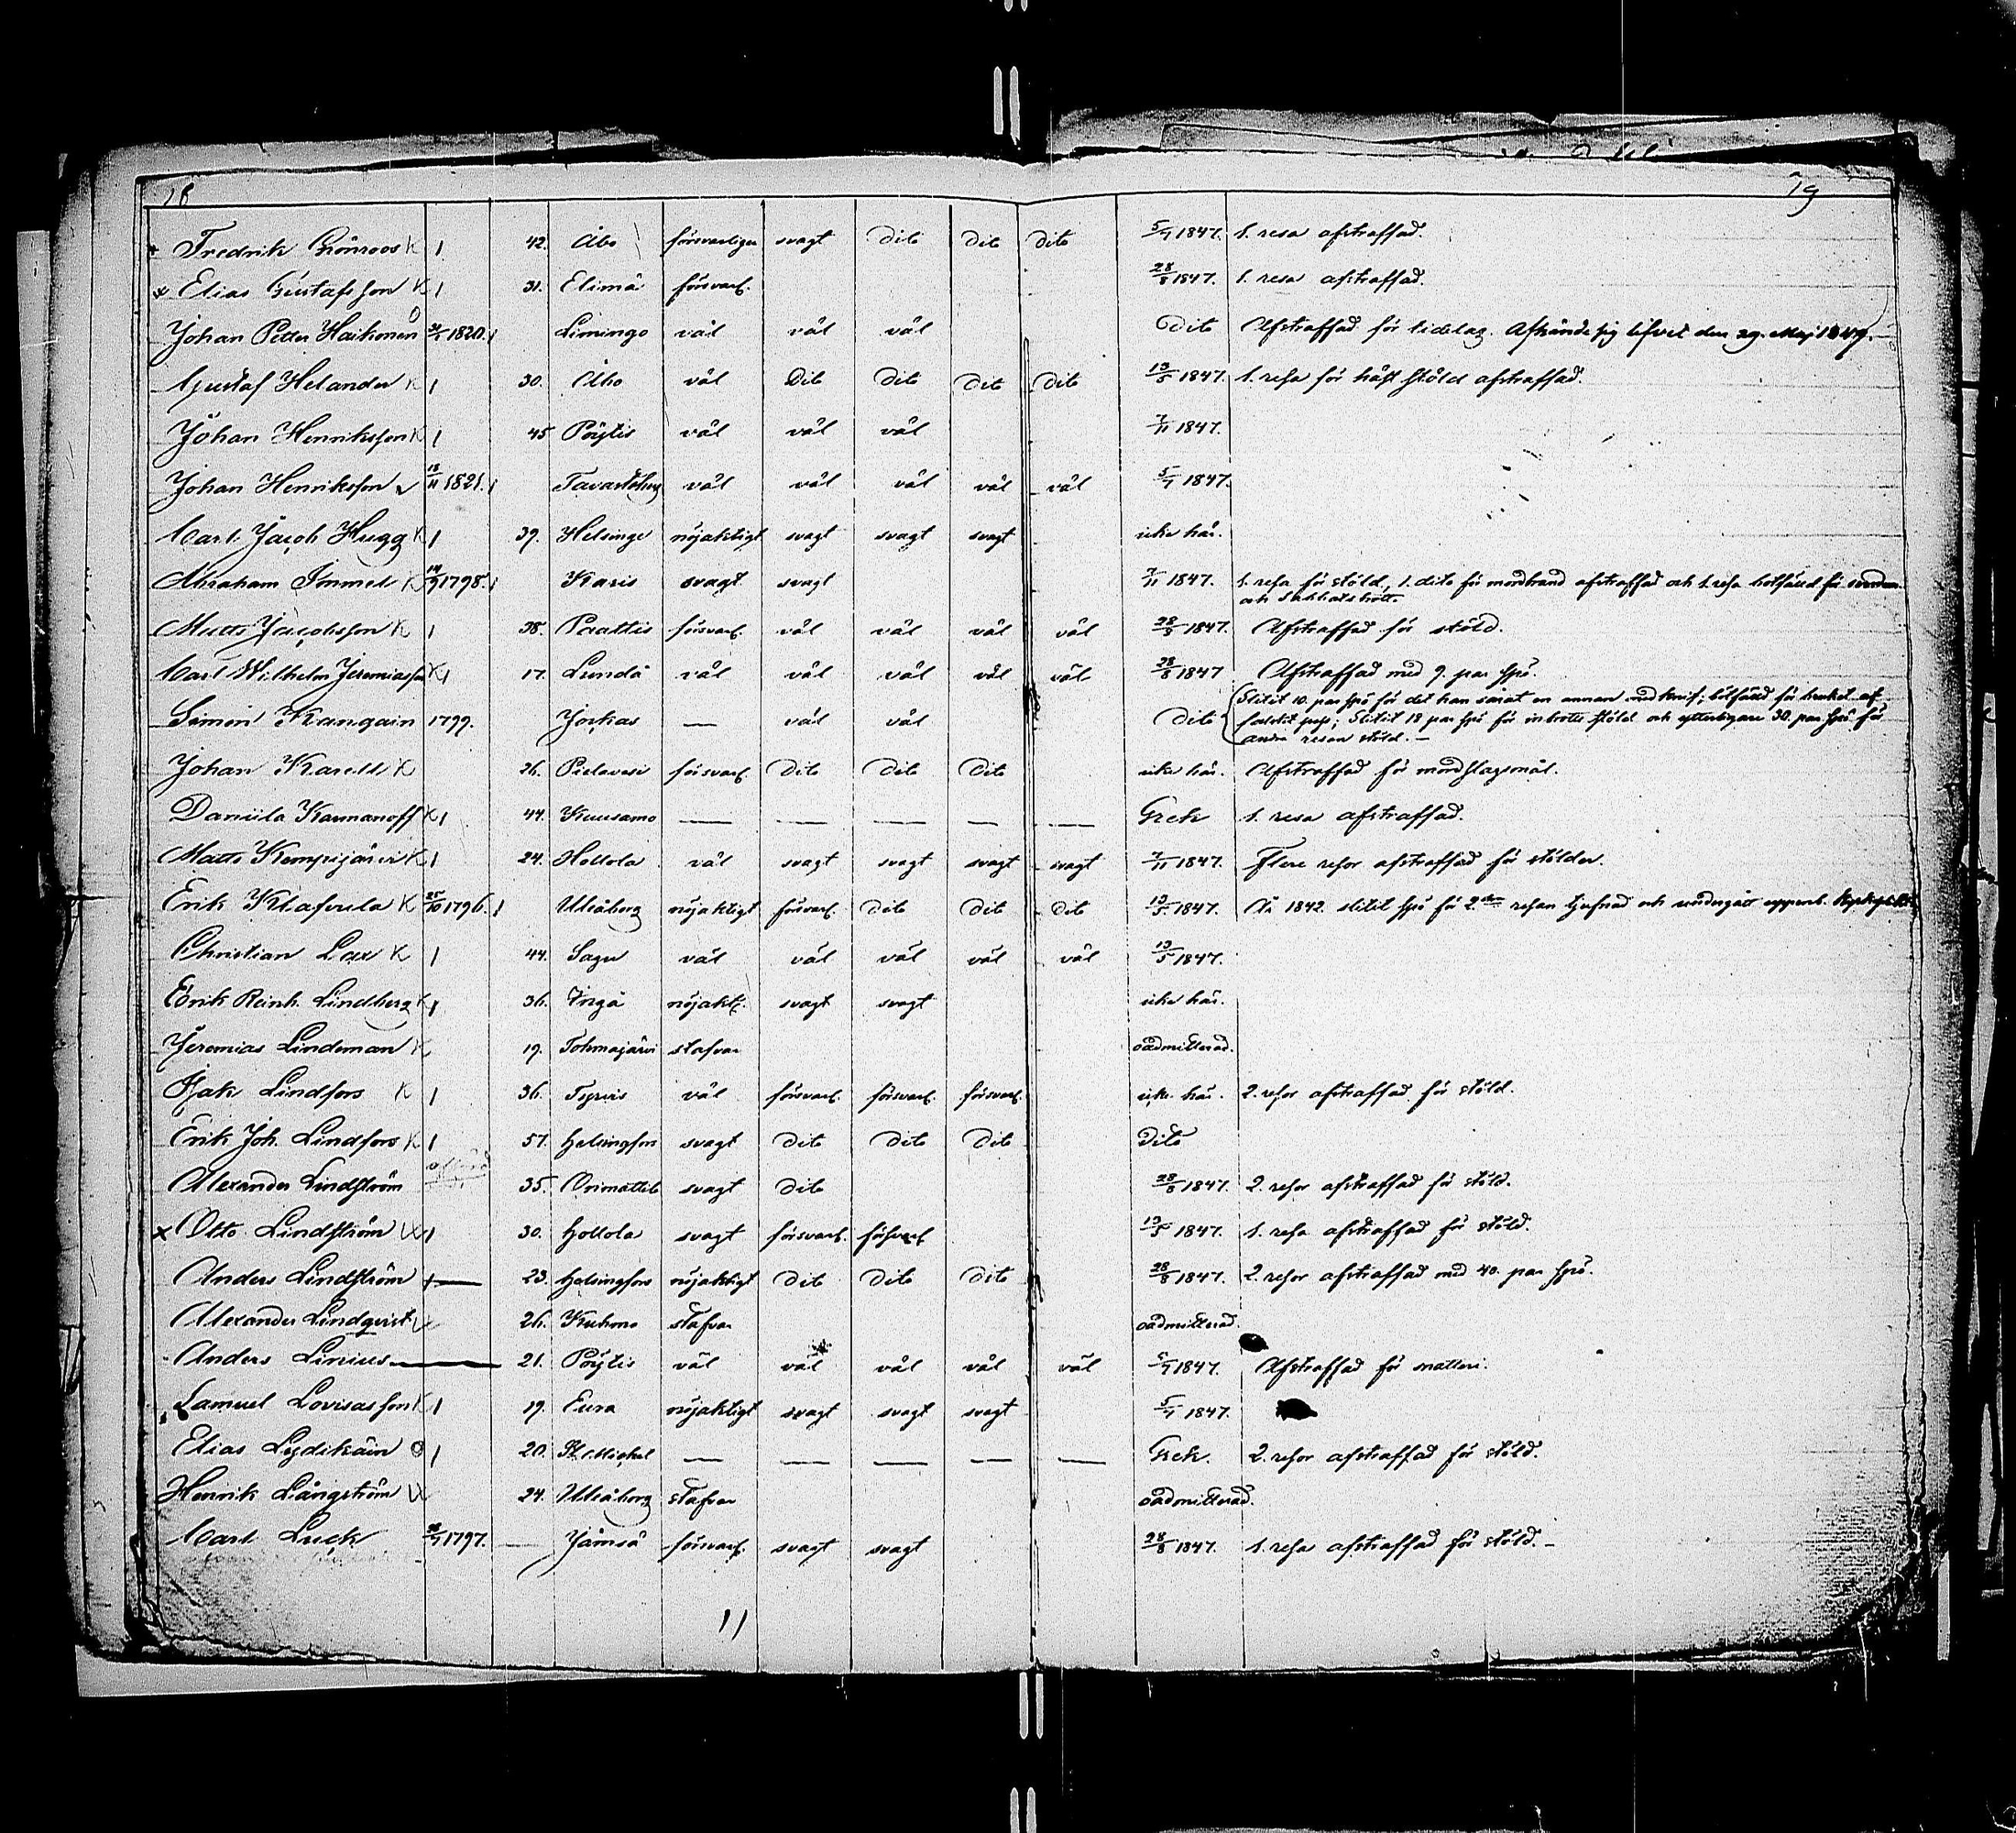 18 19
Fredrik Grönroos K 1 42. Åbo försvarligen svagt dito dito dito 5/9 1847. 1. resa afstraffad.
Elias Gustafsson K 1 31. Elimä försvarl. 28/8 1847. 1. resa afstraffad.
Johan Petter Haikonen 1820. 1 Limingo väl väl väl dito Afstraffad för tidelag. Afhände sig lifvet den 29. Maj 1849.
Gustaf Helander K 1 30. Åbo väl dito dito dito dito 13/5 1847. 1. resa för häst stöld afstraffad.
Johan Henriksson K 1 45 Pöytis väl väl väl 7/11 1847.
Johan Henriksson 18/11 1821. 1 Tavastehus väl väl väl väl väl 1847.
Carl Jacob Hugg K 1 39. Helsinge nöjaktigt svagt svagt svagt icke här.
Abraham Immel K 1798. 1 Karis svagt svagt 7/11 1847. 1. resa för stöld, 1. dito för mordbrand afstraffad och 1. resa botfälld för svordom
och sabbatsbrott.
Matts Jacobsson K 1 38. Paattis försvarl. väl väl väl väl 28/8 1847. Afstraffad för stöld.
Carl Wilhelm Jeremiasson K 1 17. Lundå väl väl väl väl väl 28/8 1847 Afstraffad med 9. par spö.
Simon Kangain 1799. Jockas — väl väl dito Slitit 10. par spö för det han sårat en annan med knif; botfälld för bruket af
falskt pass; Slitit 18 par spö för inbrotts stöld och ytterligare 30. par spö för
andra resan stöld. —
Johan Karell K 26. Pielavesi försvarl. dito dito dito icke här. Afstraffad för mordslagsmål.
Daniila Karmanoff K 1 44. Kuusamo — — — — — Grek 1. resa afstraffad.
Matts Kempijärvi K 1 24. Hollola väl svagt svagt svagt svagt 7/11 1847. Flere resor afstraffad för stölder.
Erik Klafvula K 25/10 1796. 1 Uleåborg nöjaktigt försvarl. dito dito dito 13/5 1847. År 1842. slitit spö för 2:dra resan tjufnad och undergått uppenb.
Christian Lax K 1 44. Sagu väl väl väl väl väl 13/5 1847.
Erik Reinh. Lindberg K 1 36. Ingå nöjakt. svagt svagt icke här.
Jeremias Lindeman K 19. Tohmajärvi stafvar oadmitterad.
Isak Lindfors K 1 36. Tyrvis väl försvarl. försvarl. försvarl. icke här. 2. resor afstraffad för stöld.
Erik Joh. Lindfors K 1 57. Helsingfors svagt dito dito dito dito
Alexander Lindström 35. Orimattila svagt dito 28/8 1847. 2. resor afstraffad för stöld.
Otto Lindström 1 30. Hollola svagt försvarl. försvarl. 13/5 1847. 1. resa afstraffad för stöld.
Anders Lindström 1 23. Helsingfors nöjaktigt dito dito dito 28/8 1847. 2. resor afstraffad med 40. par spö.
Alexander Lindqvist 26. Kuhmo stafvar oadmitterad.
Anders Linius 21. Pöytis väl väl väl väl väl 1847. Afstraffad för snatteri.
Samuel Lovisasson K 1 19. Eura nöjaktigt svagt svagt svagt 1847.
Elias Lydikäin 1 20. St. Michel — — — — — Grek. 2. resor afstraffad för stöld.
Henrik Långström 24. Uleåborg stafvar oadmitterad.
Carl Luck 1797. — Jämsä försvarl. svagt svagt 28/8 1847. 1. resa afstraffad för stöld. —
11